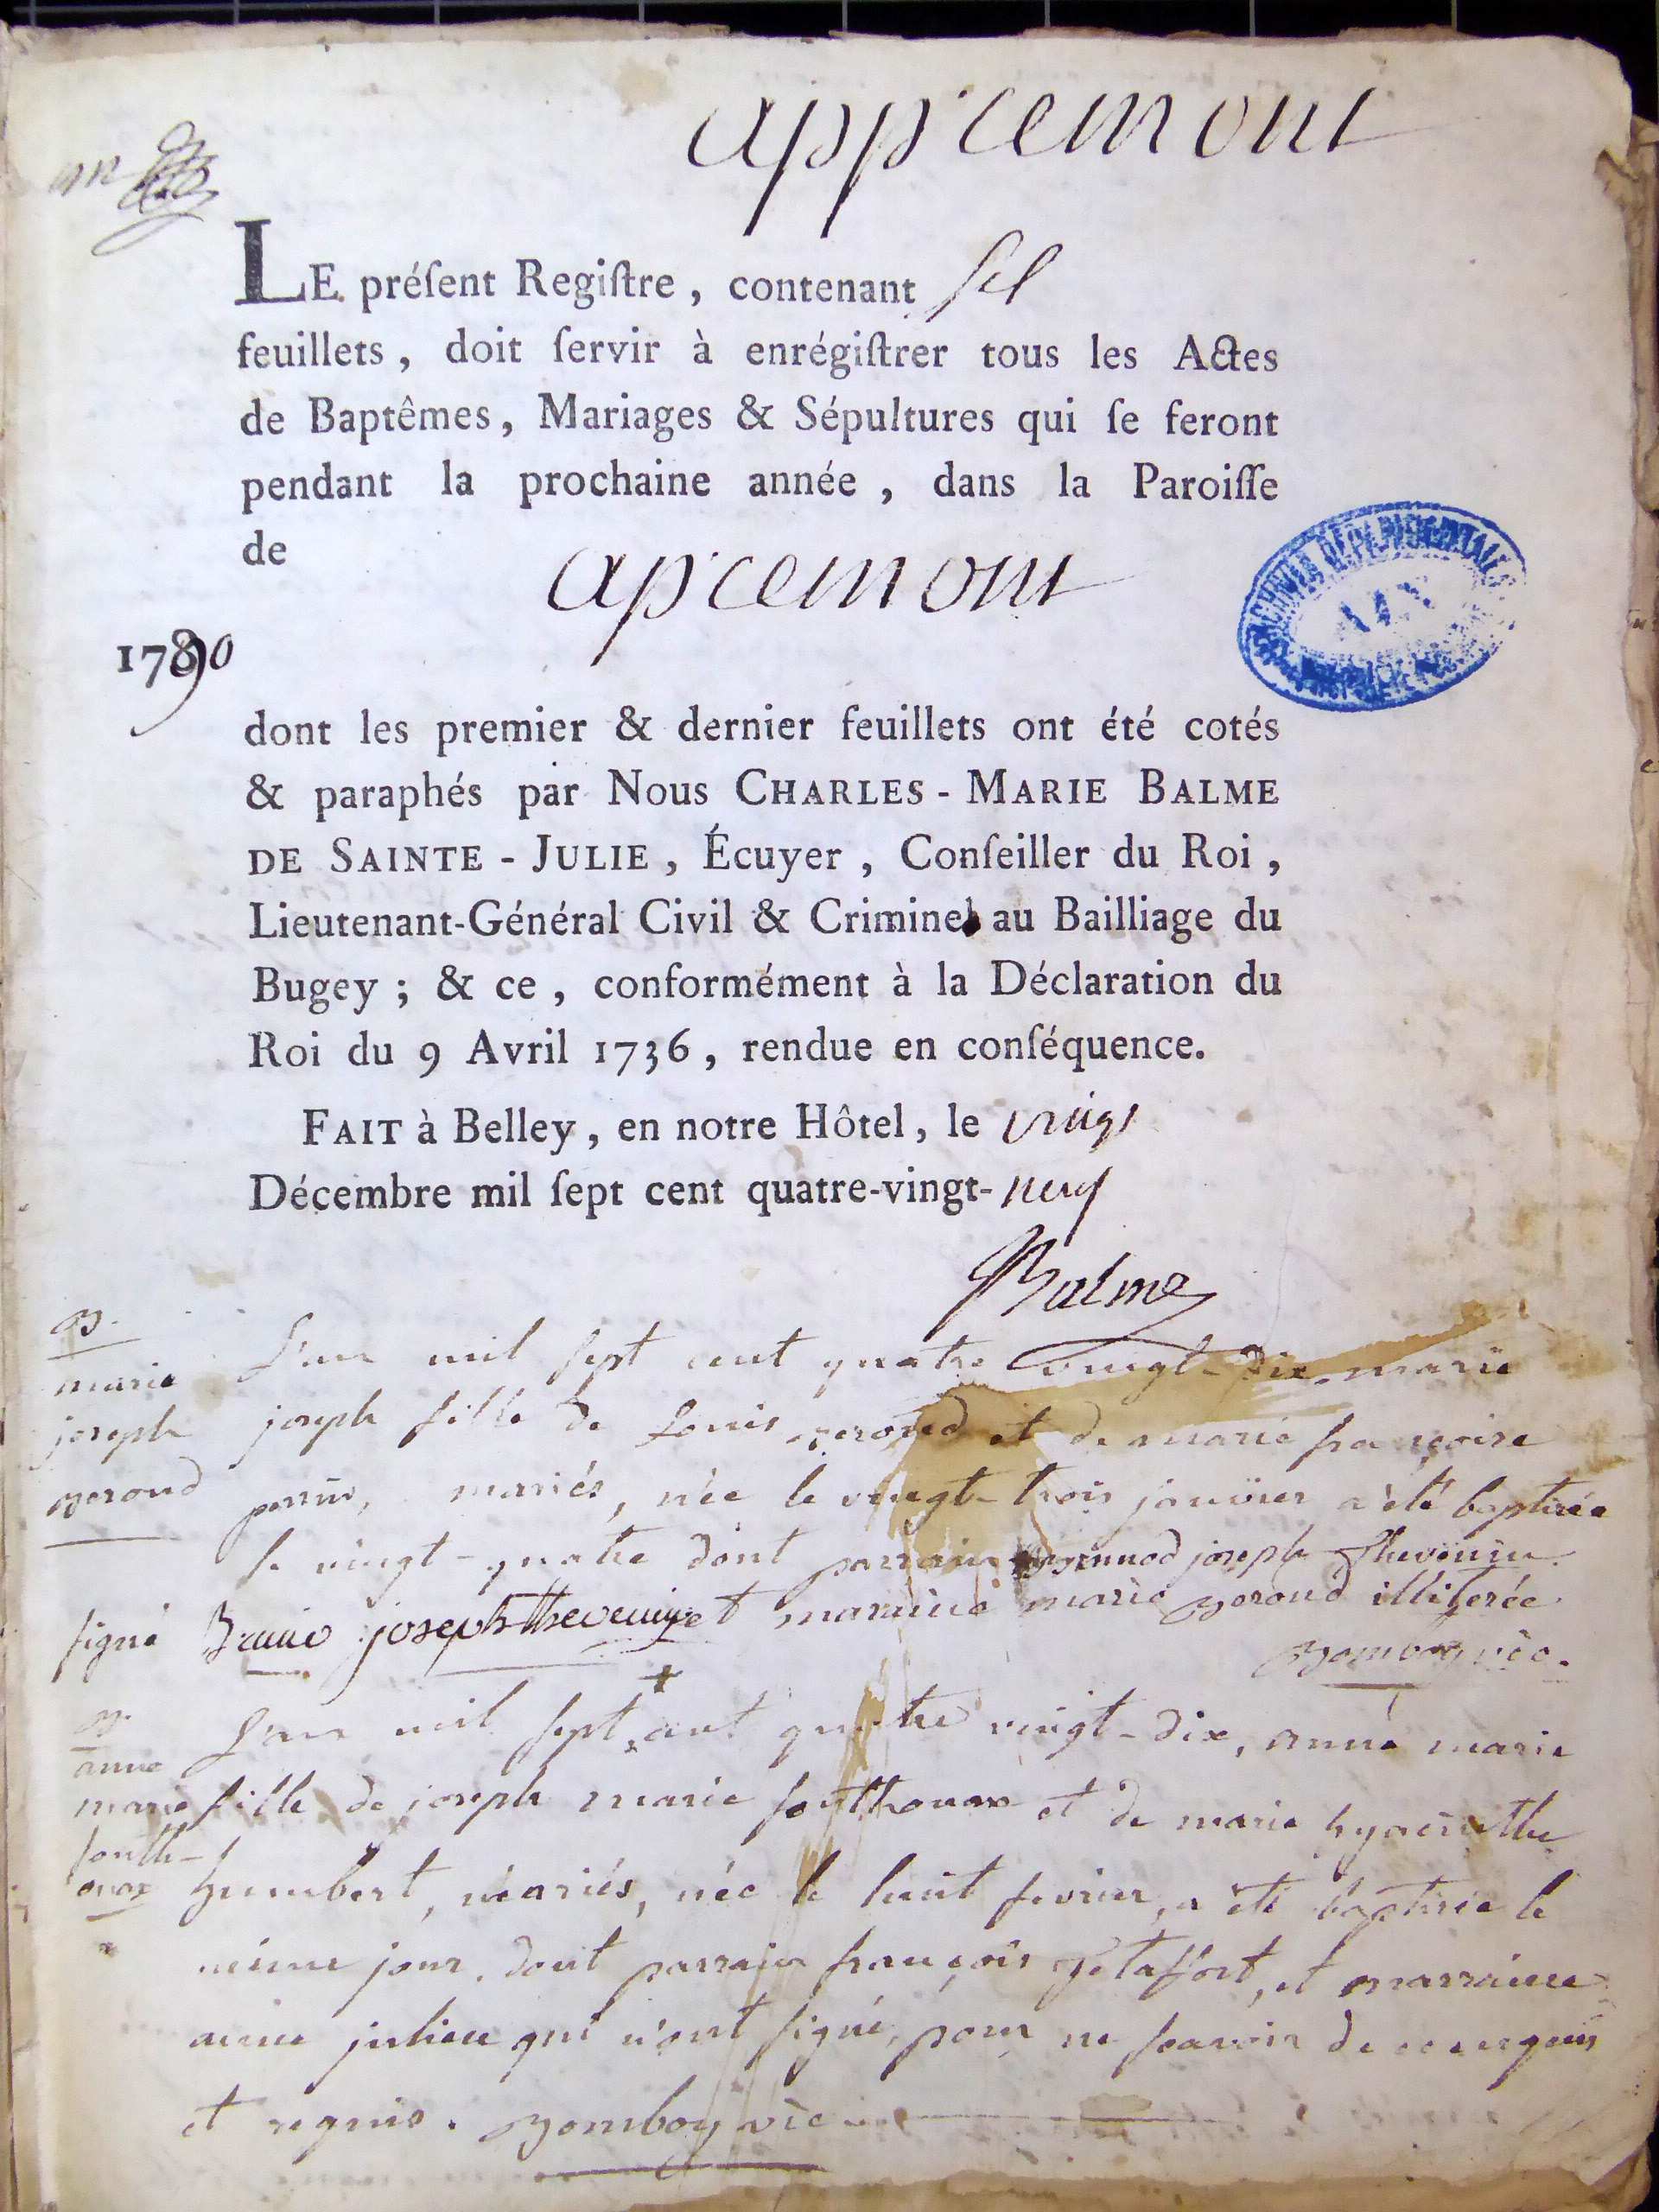 appremont
LE préſent Regiſtre, contenant
feuillets, doit ſervir à enrégiſtrer tous les Actes
de Baptêmes, Mariages & Sépultures qui ſe feront
pendant la prochaine année, dans la Paroiſſe
de apremont
1790
ARCHIVES DÉPARTEMENTALES
AIN
dont les premier & dernier feuillets ont été cotés
& paraphés par Nous CHARLES - MARIE BALME
DE SAINTE - JULIE, Écuyer, Conſeiller du Roi,
Lieutenant-Général Civil & Criminel au Bailliage du
Bugey ; & ce, conformément à la Déclaration du
Roi du 9 Avril 1736, rendue en conſéquence.
FAIT à Belley, en notre Hôtel, le vingt
Décembre mil ſept cent quatre-vingt-neuf
Balme
B.
marie
joseph
L'an mil sept cent quatre vingt-dix marie
joseph fille de Louis et de marie françoise
perrin, mariés, née le vingt-trois janvier a été baptisée
le vingt-quatre dont parrain joseph Thevenin
signé joseph thevenin et maraine marie illiterée
vic.
B.
anne
marie
L'an mil sept cent quatre vingt-dix, anne marie
fille de joseph marie et de marie hyacinthe
humbert, mariés, née le huit fevrier, a été baptisée le
même jour, dont parrain françois et marraine
julien qui n'ont signé, pour ne savoir de ce enquis
et requis. vic